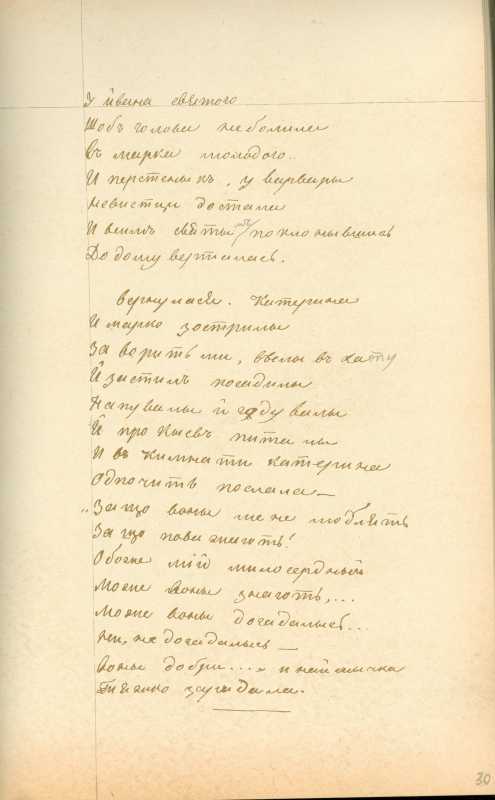 У ивана святого
Шобъ голова не болила
Въ марка молодого..
И перстеныкъ, у варвары
Невистци достала
И всимъ святымъ поклонывшись
До дому верталась.
вернулася. Катерина
И марко зострилы
За воритьми, ввелы въ хату
Й застилъ посадилы
Напувалы й годувалы
Й про Кыевъ питалы
И въ кимнати катерина
Одпочить послала_
„За що воны мене люблять
За що поважають!
О боже мій милосердный
Може воны знають,...
Може воны догадались...
Ни, не догадались_
Воны добри.... и наймычка
Тяжко заридала.
30